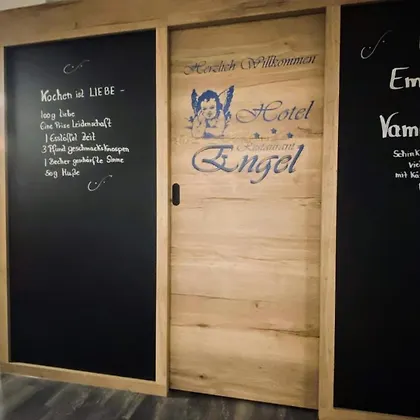 Kochen ist LIEBE -
100g Liebe
Eine Prise Leidenschaft
1 Esslöffel Zeit
3 Pfund geschmacksknospen
1 Becher geschärfte Sinne
50g Muße
Herzlich Willkommen
Hotel
Restaurant
Engel
Em
Vam
Schink
vie
mit Kä